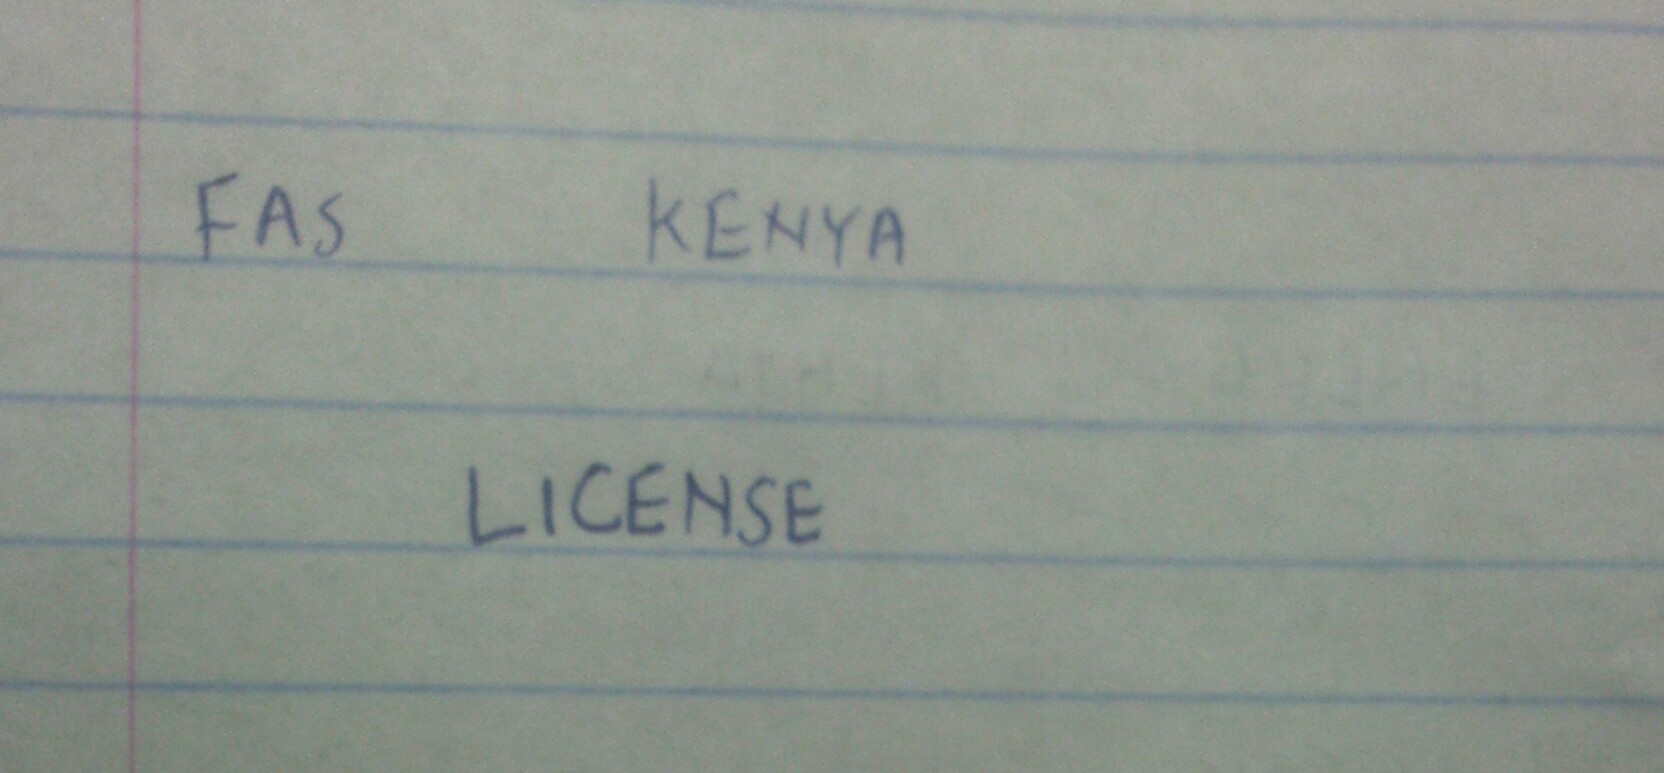 FAS KENYA
LICENSE